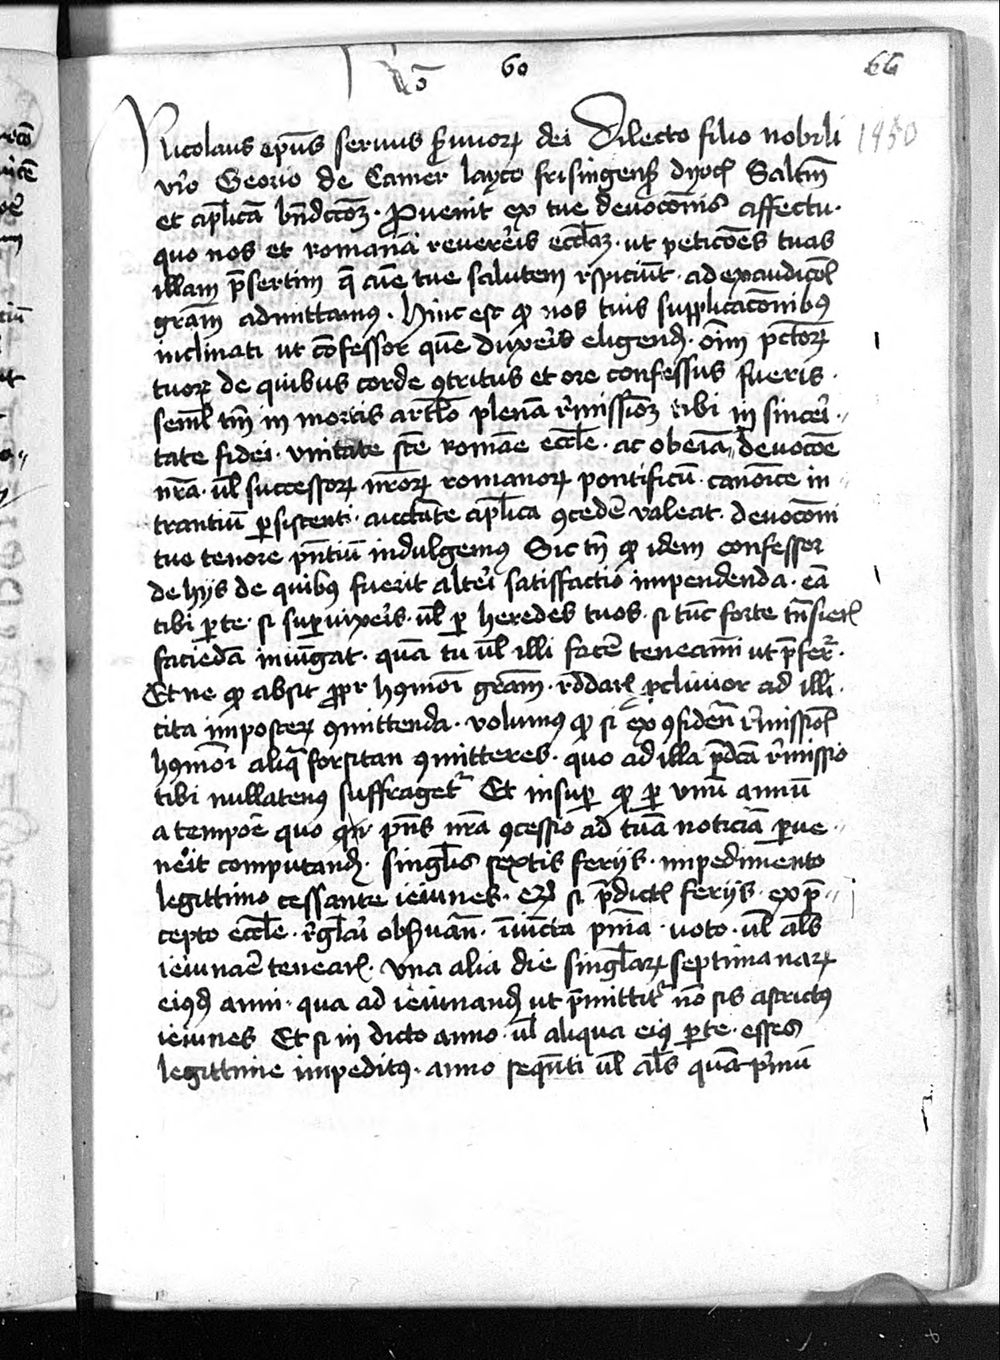 60
66
1450
Nicolaus ep̄us seruus ẜuuorꝝ dei Dilecto filio nobili
vir̄o Georio de Camer layco frisingenẜ dyoc̄ Saltm̄
et apl̄icā bn̄dcc̄oꝫ · Ꝓuenit ex tue deuoc̄onis affectu ·
quo nos et romanā reuer̄eis eccl̄iaꝫ · ut petic̄oēs tuas
illam p̄sertim q̄ aīe tue salutem rspiciūt · ad exaudic̄ol
grām admittamus · Hinc est ꝙ nos tuis supplicac̄onibꝰ
inclinati ut c̄ofessor quē duxeis eligend̄ · oīm pc̄torꝝ
tuorꝝ de quibus corde ꝯtritus et ore confessus fueris ·
seml̄ tm̄ in mortis artl̄o plenā r̄missioꝫ tibi in sincei ·
tate fidei · vnitate sc̄te romāe eccl̄e · ac obeīa deuoc̄oe
nr̄a · ul̄ successorꝝ nr̄orꝝ romanorꝝ pontificū · canoīce in
trantiū ꝑsistenti · auctāte apl̄ica ꝯcedē̄ valeat · deuoc̄oni
tue tenore pn̄tiū indulgemꝰ Sic tn̄ ꝙ idem confessor
de hijs de quibꝰ fuerit alt̄ei satisfactio impendenda · eā
tibi ꝑ te · si suꝑuixeis · ul̄ ꝑ heredes tuos · si tūc forte tn̄sieris
faciēdā iniūgat · quā tu ul̄ illi facē̄ teneami ut p̄fer̄ ·
Et ne ꝙ absit ꝓpr hꝰmoi grām · rd̄daris ꝓcliuior ad illi ·
cita imposterꝝ ꝯmittenda · volumꝰ ꝙ si ex ꝯfiden̄ r̄missiois
hꝰmōi aliq̄ forsitan ꝯmitteres · quo ad illa p̄dc̄a r̄missio
tibi nullatenꝰ suffraget᷑ Et insuꝑ ꝙ ꝑ vnū annū
a tempoē quo pn̄s nr̄a ꝯcessio ad tuā noticiā ꝑue
neit computand̄ · singl̄is sextis ferijs · impedimento
legittimo cessante ieiunes · si p̄dictis ferijs · ex p̄
cepto eccl̄e · r̄gl̄ai obẜuān̄ · īiūcta pnīa · uoto · ul̄ al̄s
ieiunaē tenearis · vna alia die singl̄arꝝ septimanarꝝ
eiꝰd̄ anni · qua ad ieiunand̄ ut p̄mittit᷑ nō sis astrictꝰ
ieiunes Et si in dicto anno · ul̄ aliqua eiꝰ ꝑte · esses
legittime impeditꝰ · anno seqn̄ti ul̄ al̄s quā pimū